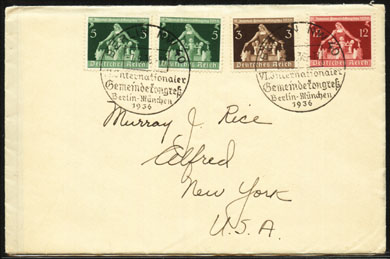 5 5 3 3 12
Deutsches Reich Deutsches Reich Deutsches Reich Deutsches Reich
VI. Internationaler
Gemeindekongreß
Berlin-München
1936
VI. Internationaler
Gemeindekongreß
Berlin-München
1936
Murray J. Rice
Alfred
New York
U.S.A.